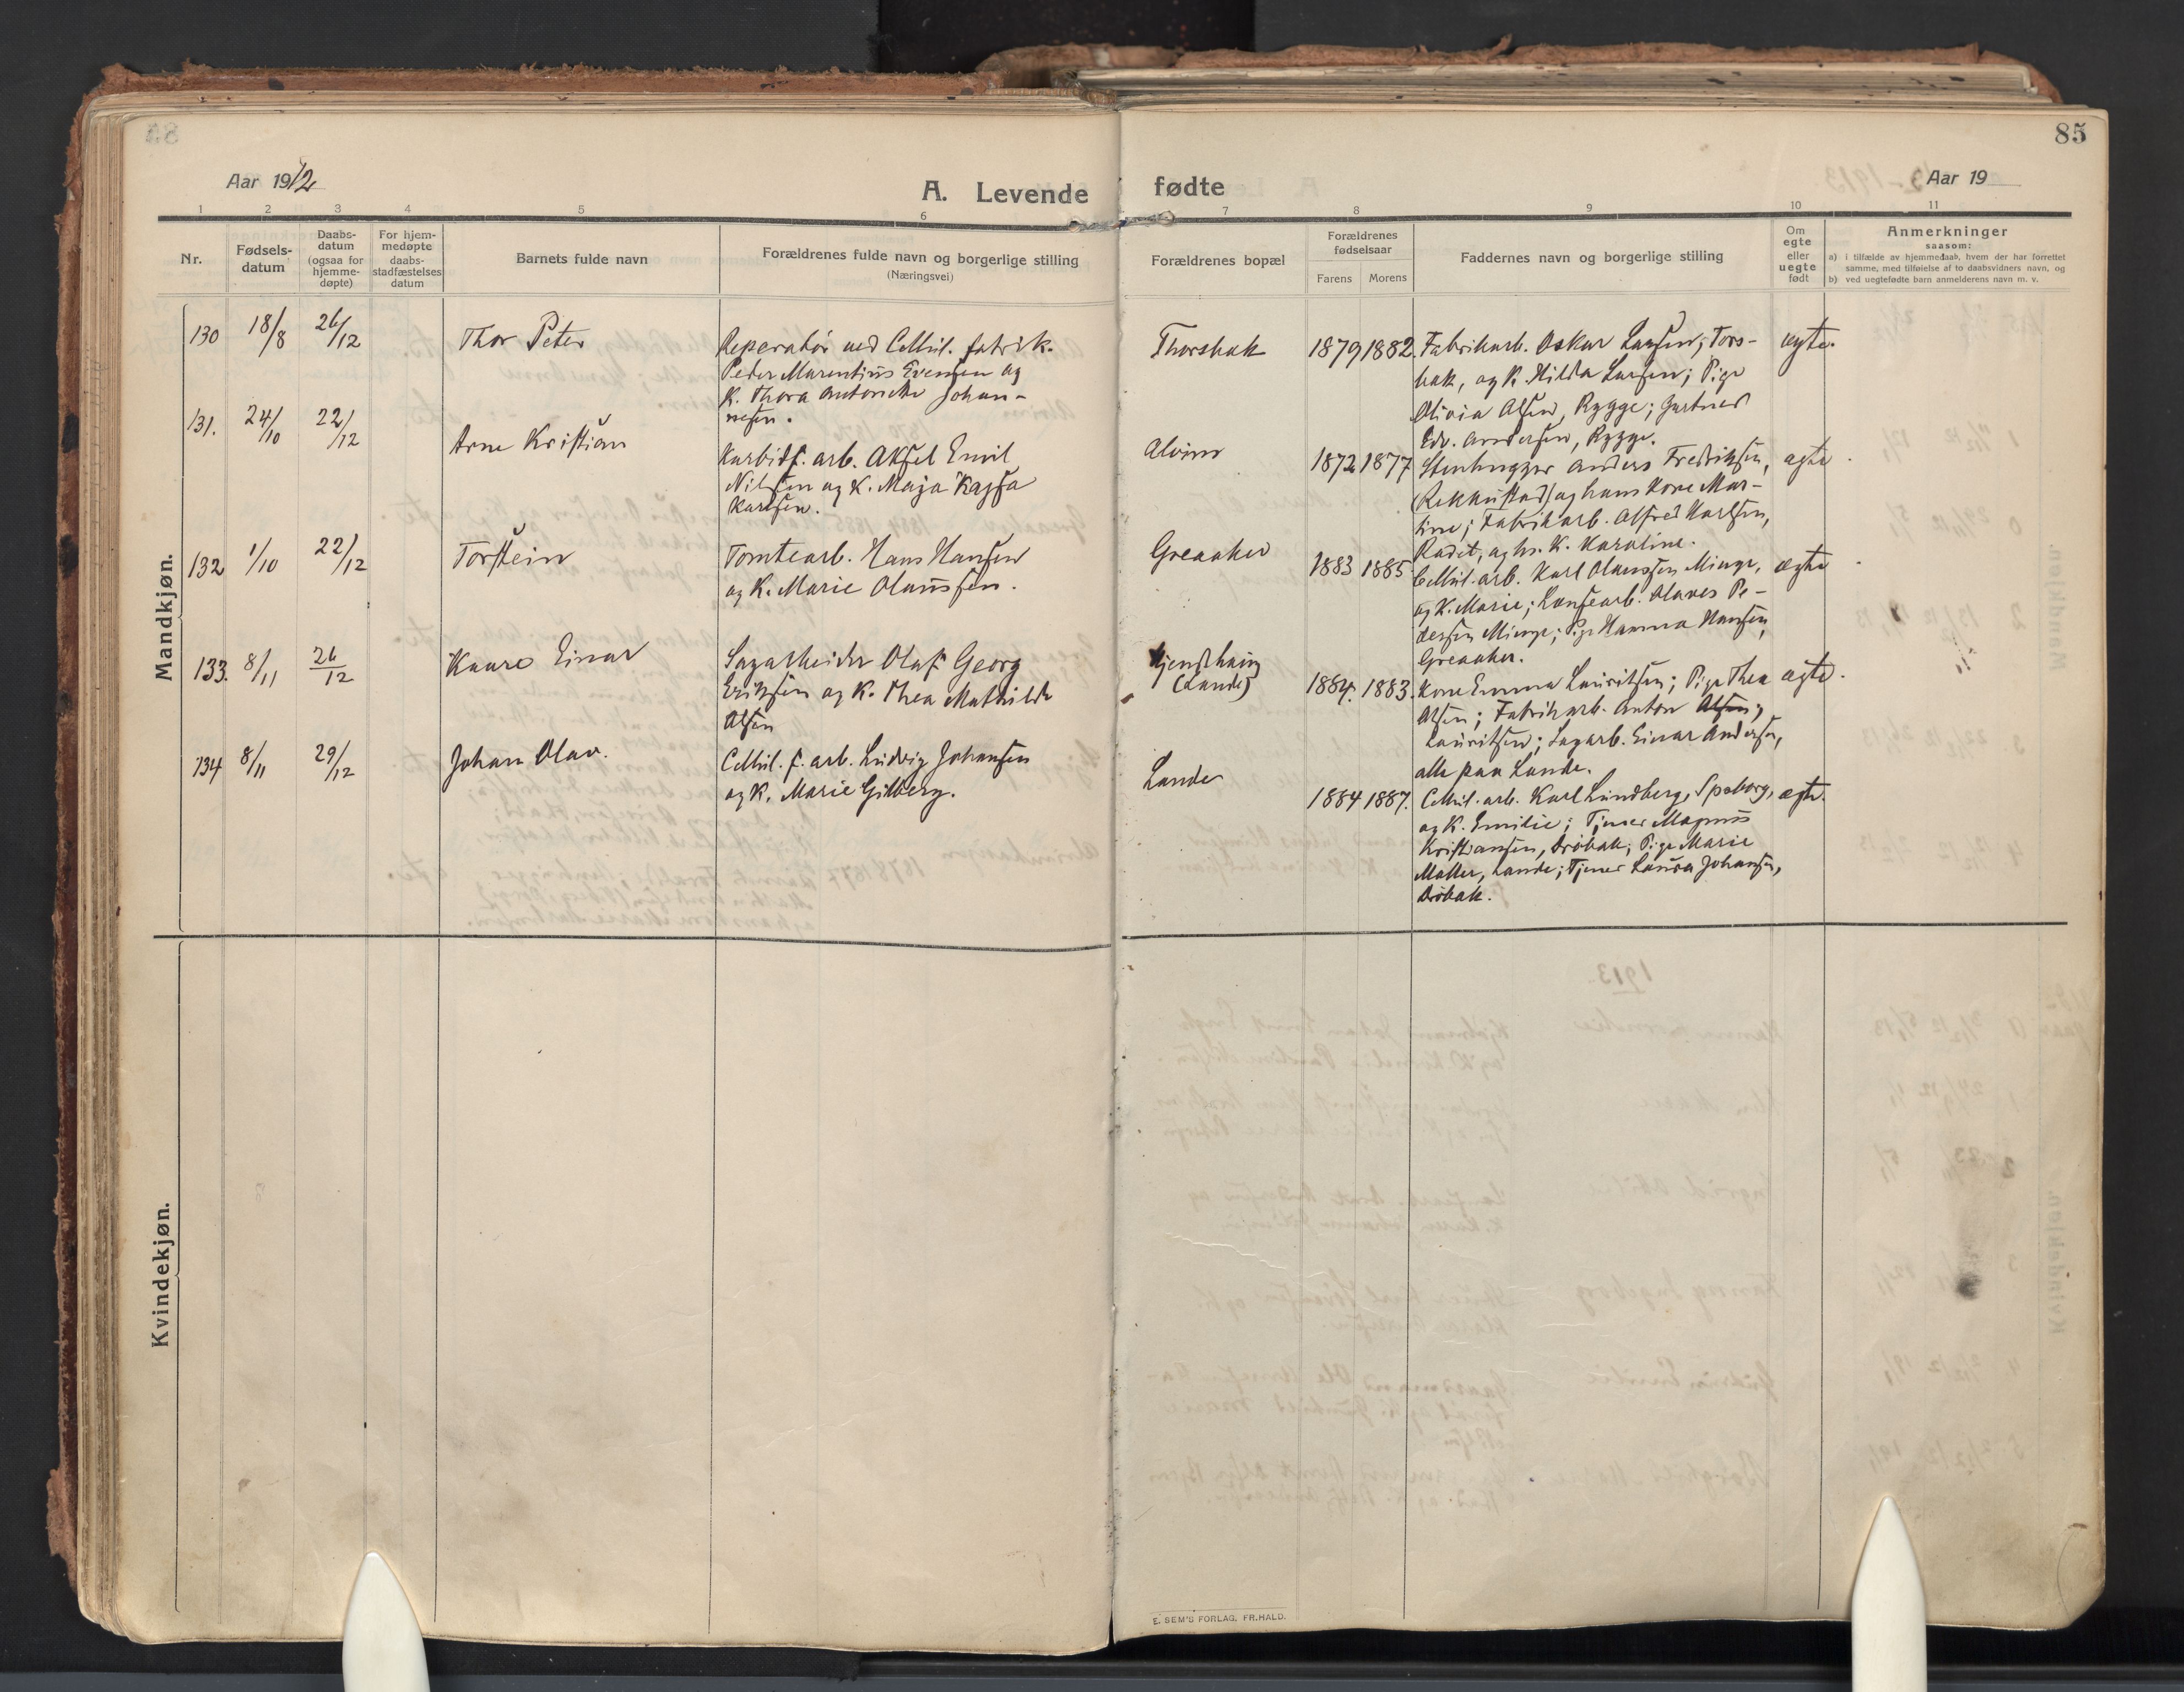 85
Aar 1912
A. Levende fødte
Aar 19
1 2 3 4 5 6 7 8 9 10 11
Nr.
Fødsels-
datum
Daabs-
datum
(ogsaa for
hjemme-
døpte)
For hjem-
medøpte
daabs-
stadfæstelses
datum
Barnets fulde navn
Forældrenes fulde navn og borgerlige stilling
(Næringsvei)
Forældrenes bopæl
Forældrenes
fødselsaar
Farens Morens
Faddernes navn og borgerlige stilling
Om
egte
eller
uegte
født
Anmerkninger
saasom:
a) i tilfælde av hjemmedaab, hvem der har forrettet
samme, med tilføielse af to daabsvidners navn, og
b) ved uegtefødte barn anmelderens navn m. v.
Mandkjøn.
130 18/8 26/12 Thor Peter
Reperatør ved Cellul. fabrik.
Peder Marentius Evensen og
K. Thora Antonette Johan-
nesen.
Thorsbak 1879 1882.
Fabrikarb. Oskar Larsen, Tors-
bak, og K. Hilda Larsen; Pige
Olivia Olsen, Rygge; Gartner
Edv. Andersen, Rygge.
egte.
131. 24/10 22/12 Arne Kristian
Karbidf. arb. Aksel Emil
Nilssen og K. Maja Kajsa
Karlsen.
Alvim 1872 1877
Stenhugger Anders Fredriksen,
(Rekkustad) og hans Kone Mar-
tine; Fabrikarb. Alfred Karlsen,
Radet, og hs. K. Karoline.
egte
132 1/10 22/12 Torstein
Tomtearb. Hans Hansen
og K. Marie Olaussen.
Greaaker 1883 1885.
Cellul. arb. Karl Olaussen Minge,
og K. Marie; Lensearb. Olaves Pe-
dersen Minge; Pige Hanna Hansen,
Greaaker.
egte
133. 8/11 26/12 Kaare Einar
Sagarbeider Olaf Georg
Eriksen og K. Thea Mathilde
Olsen
(Lande) 1884. 1883.
Kone Emma Lauritsen; Pige Thea
Olsen; Fabrikarb. Anton Olsen;
Lauritsen; Sagarb. Einar Andersen,
alle paa Lande.
egte.
134 8/11 29/12 Johan Olav.
Cellul. f. arb. Ludvig Johansen
og K. Marie Gilberg.
Lande 1884 1887.
Cellul. arb. Karl Lundberg, Spoborg,
og K. Emilie; Tjener Magnus
Kristiansen, Drøbak; Pige Marie
Møller, Lande; Tjener Laura Johansen,
Drøbak.
egte.
Kvindekjøn.
E. SEM'S FORLAG, FR.HALD.